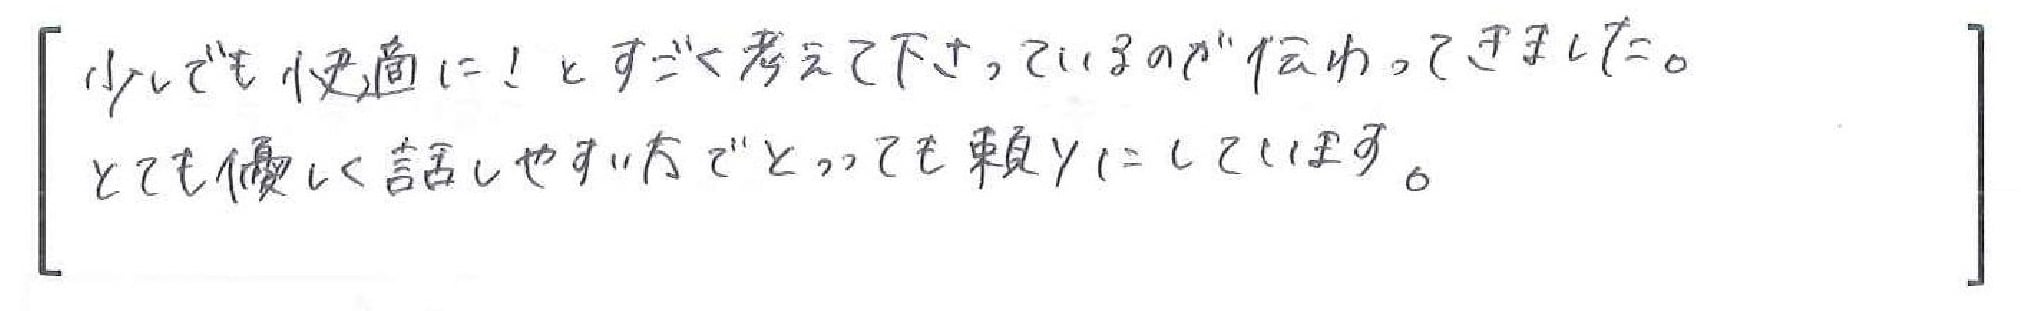 少しでも快適に！とすごく考えて下さっているのが伝わってきました。
とても優しく話しやすい方でとっても頼りにしています。